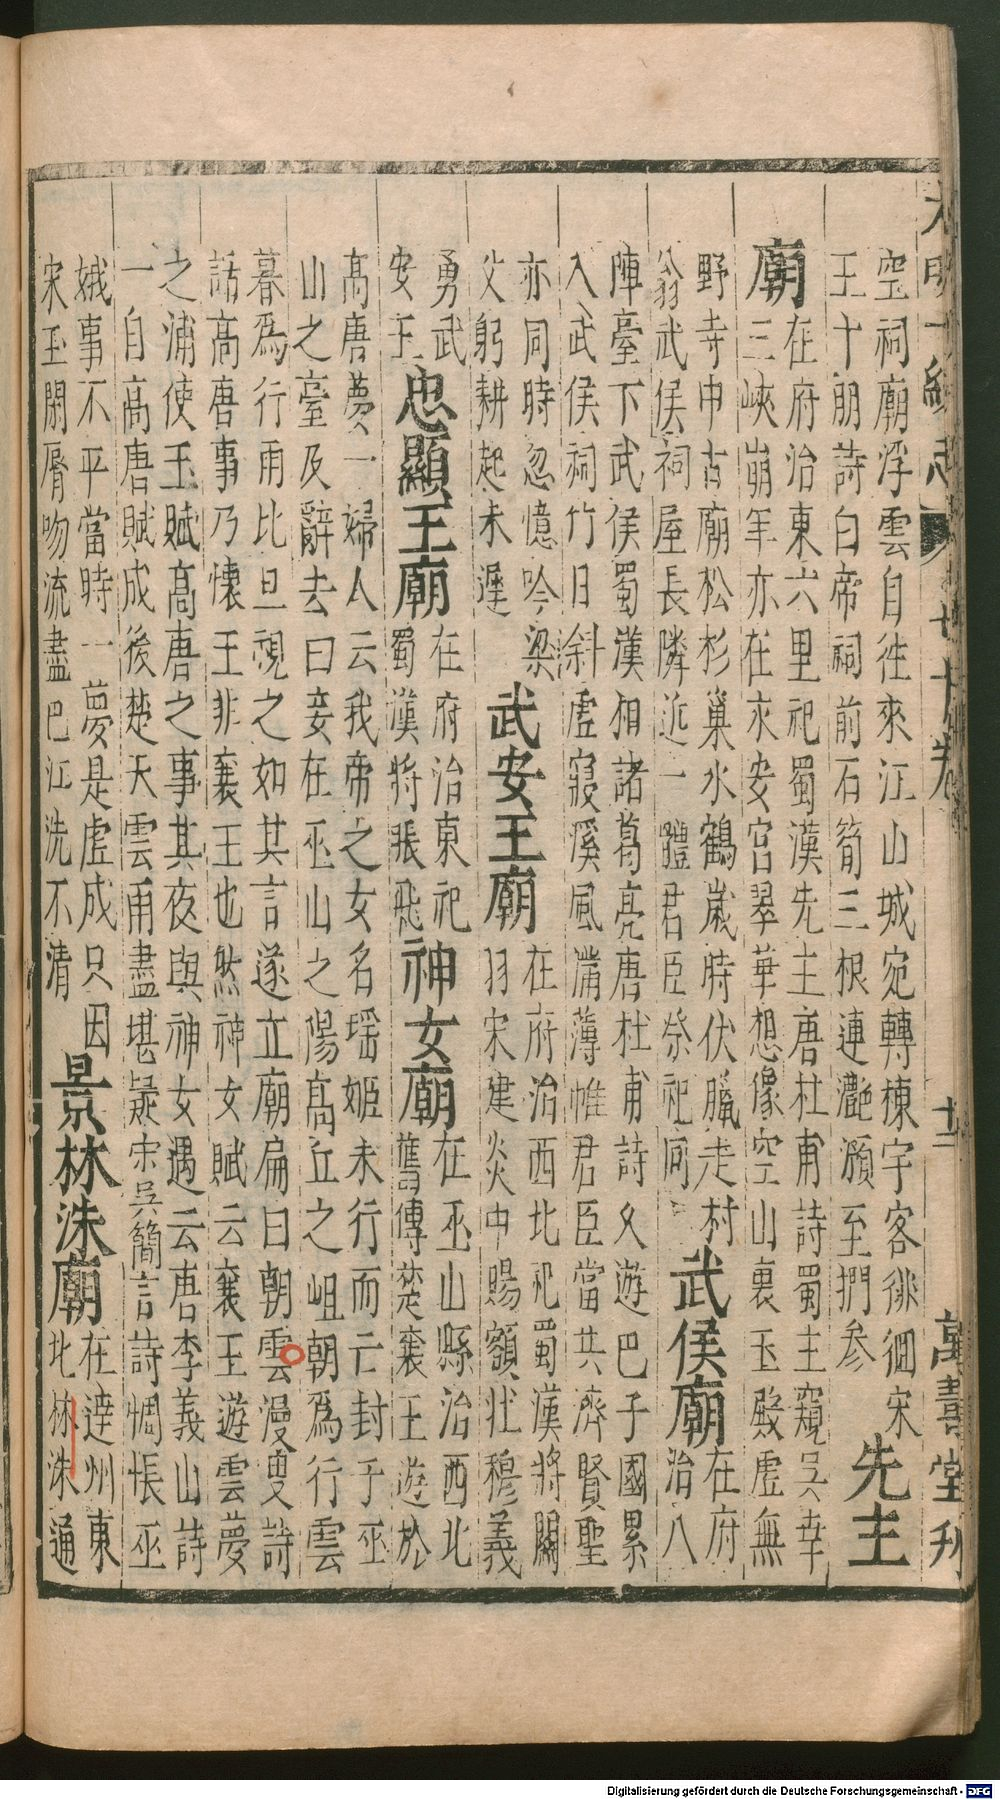 大明一統志 卷七十 十二 萬壽堂刊
空祠廟浮雲自往來江山城宛轉棟宇客徘徊宋
王十朋詩白帝祠前石筍三根連灔澦至捫參
先主
廟
在府治東六里祀蜀漢先主唐杜甫詩蜀主窺吳幸
三峽崩年亦在永安宮翠華想像空山裏玉殿虛無
野寺中古廟松杉巢水鶴歲時伏臘走村
翁武侯祠屋長隣近一體君臣祭祀同
武侯廟
在府
治八
陣臺下武侯蜀漢相諸葛亮唐杜甫詩久遊巴子國累
入武侯祠竹日斜虛寢溪風滿薄帷君臣當共濟賢聖
亦同時忽憶吟梁
父躬耕起未遲
武安王廟
在府治西北祀蜀漢將關
羽宋建炎中賜額壯穆義
勇武
安王
忠顯王廟
在府治東祀
蜀漢將張飛
神女廟
在巫山縣治西北
舊傳楚襄王遊於
高唐夢一婦人云我帝之女名瑶姬未行而亡封于巫
山之臺及辭去曰妾在巫山之陽高丘之岨朝爲行雲
暮爲行雨比旦視之如其言遂立廟扁曰朝雲漫叟詩
話高唐事乃懷王非襄王也然神女賦云襄王遊雲夢
之浦使玉賦高唐之事其夜與神女遇云唐李義山詩
一自高唐賦成後楚天雲雨盡堪疑宋吳簡言詩惆悵巫
娥事不平當時一夢是虛成只因
宋玉閑脣吻流盡巴江洗不清
景林洙廟
在達州東
北林洙通
Digitalisierung gefördert durch die Deutsche Forschungsgemeinschaft - DFG